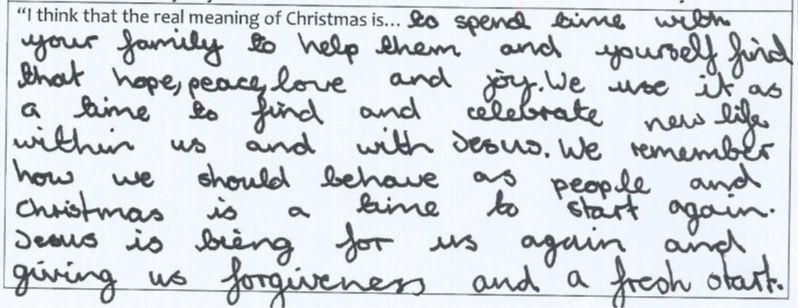 "I think that the real meaning of Christmas is... to spend time with
your family to help them and yourself find
that hope, peace, love and joy. We use it as
a time to find and celebrate new life
within us and with Jesus. We remember
how we should behave as people and
Christmas is a time to start again.
Jesus is bieng for us again and
giving us forgiveness and a fresh start.